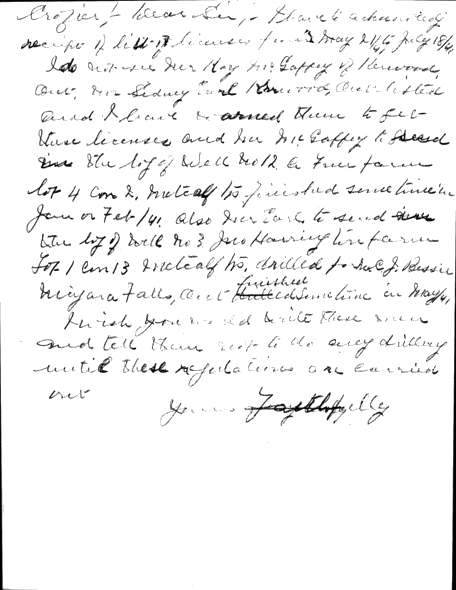 Crozier, Dear Sir, I have to acknowledge
receipt of list of licenses from May 21/41 to July 18/41
I do not see Mr Roy McGaffey of Kerwood,
Ont, Mr Sidney Earl Kerwood, Ont listed
and I have warned them to get
these licenses and Mr McGaffey to send
in the log of Well No 12 a True farm
lot 4 Con 2, Metcalf Tp, finished sometime in
Jan or Feb/41. also Mr Earl to send
the log of Well No 3 Jno Harrington farm
Lot 1 Con 13 Metcalf Tp, drilled for Mr C. J.
Niagara Falls, Ont finished sometime in May/41
I wish you would write these men
and tell them not to do any drilling
until these regulations are carried
out
Yours Faythfully